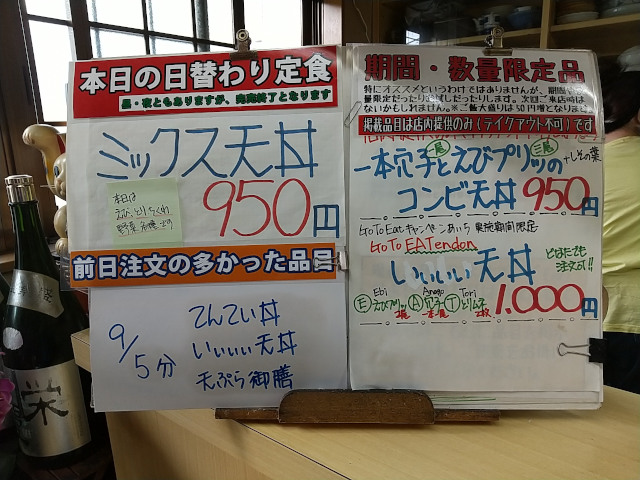 本日の日替わり定食
昼・夜ともありますが、完売終了となります
ミックス天丼
本日は
えび、とり、ちくわ
野菜
950円
前日注文の多かった品目
9/5分
てんてい丼
いぃぃぃ天丼
天ぷら御膳
期間・数量限定品
特にオススメというわけではありませんが、期間や数
量限定だったり、お試しだったりします。次回ご来店時は
ないかもしれません。※ご飯大盛りは50円増となります
掲載品目は店内提供のみ(テイクアウト不可)です
一本穴子とえびプリッツの
一尾
三尾
+しその葉
コンビ天丼 950円
GoToEatキャンペーンあいち 実施期間限定
GoTo EATendon
いぃぃぃ天丼
どなたでも
注文可!!
1.000円
Ebi Anago Tori
Ⓔえびプリッツ Ⓐ穴子 Ⓣとりムネ
2尾 一本 2枚
栄